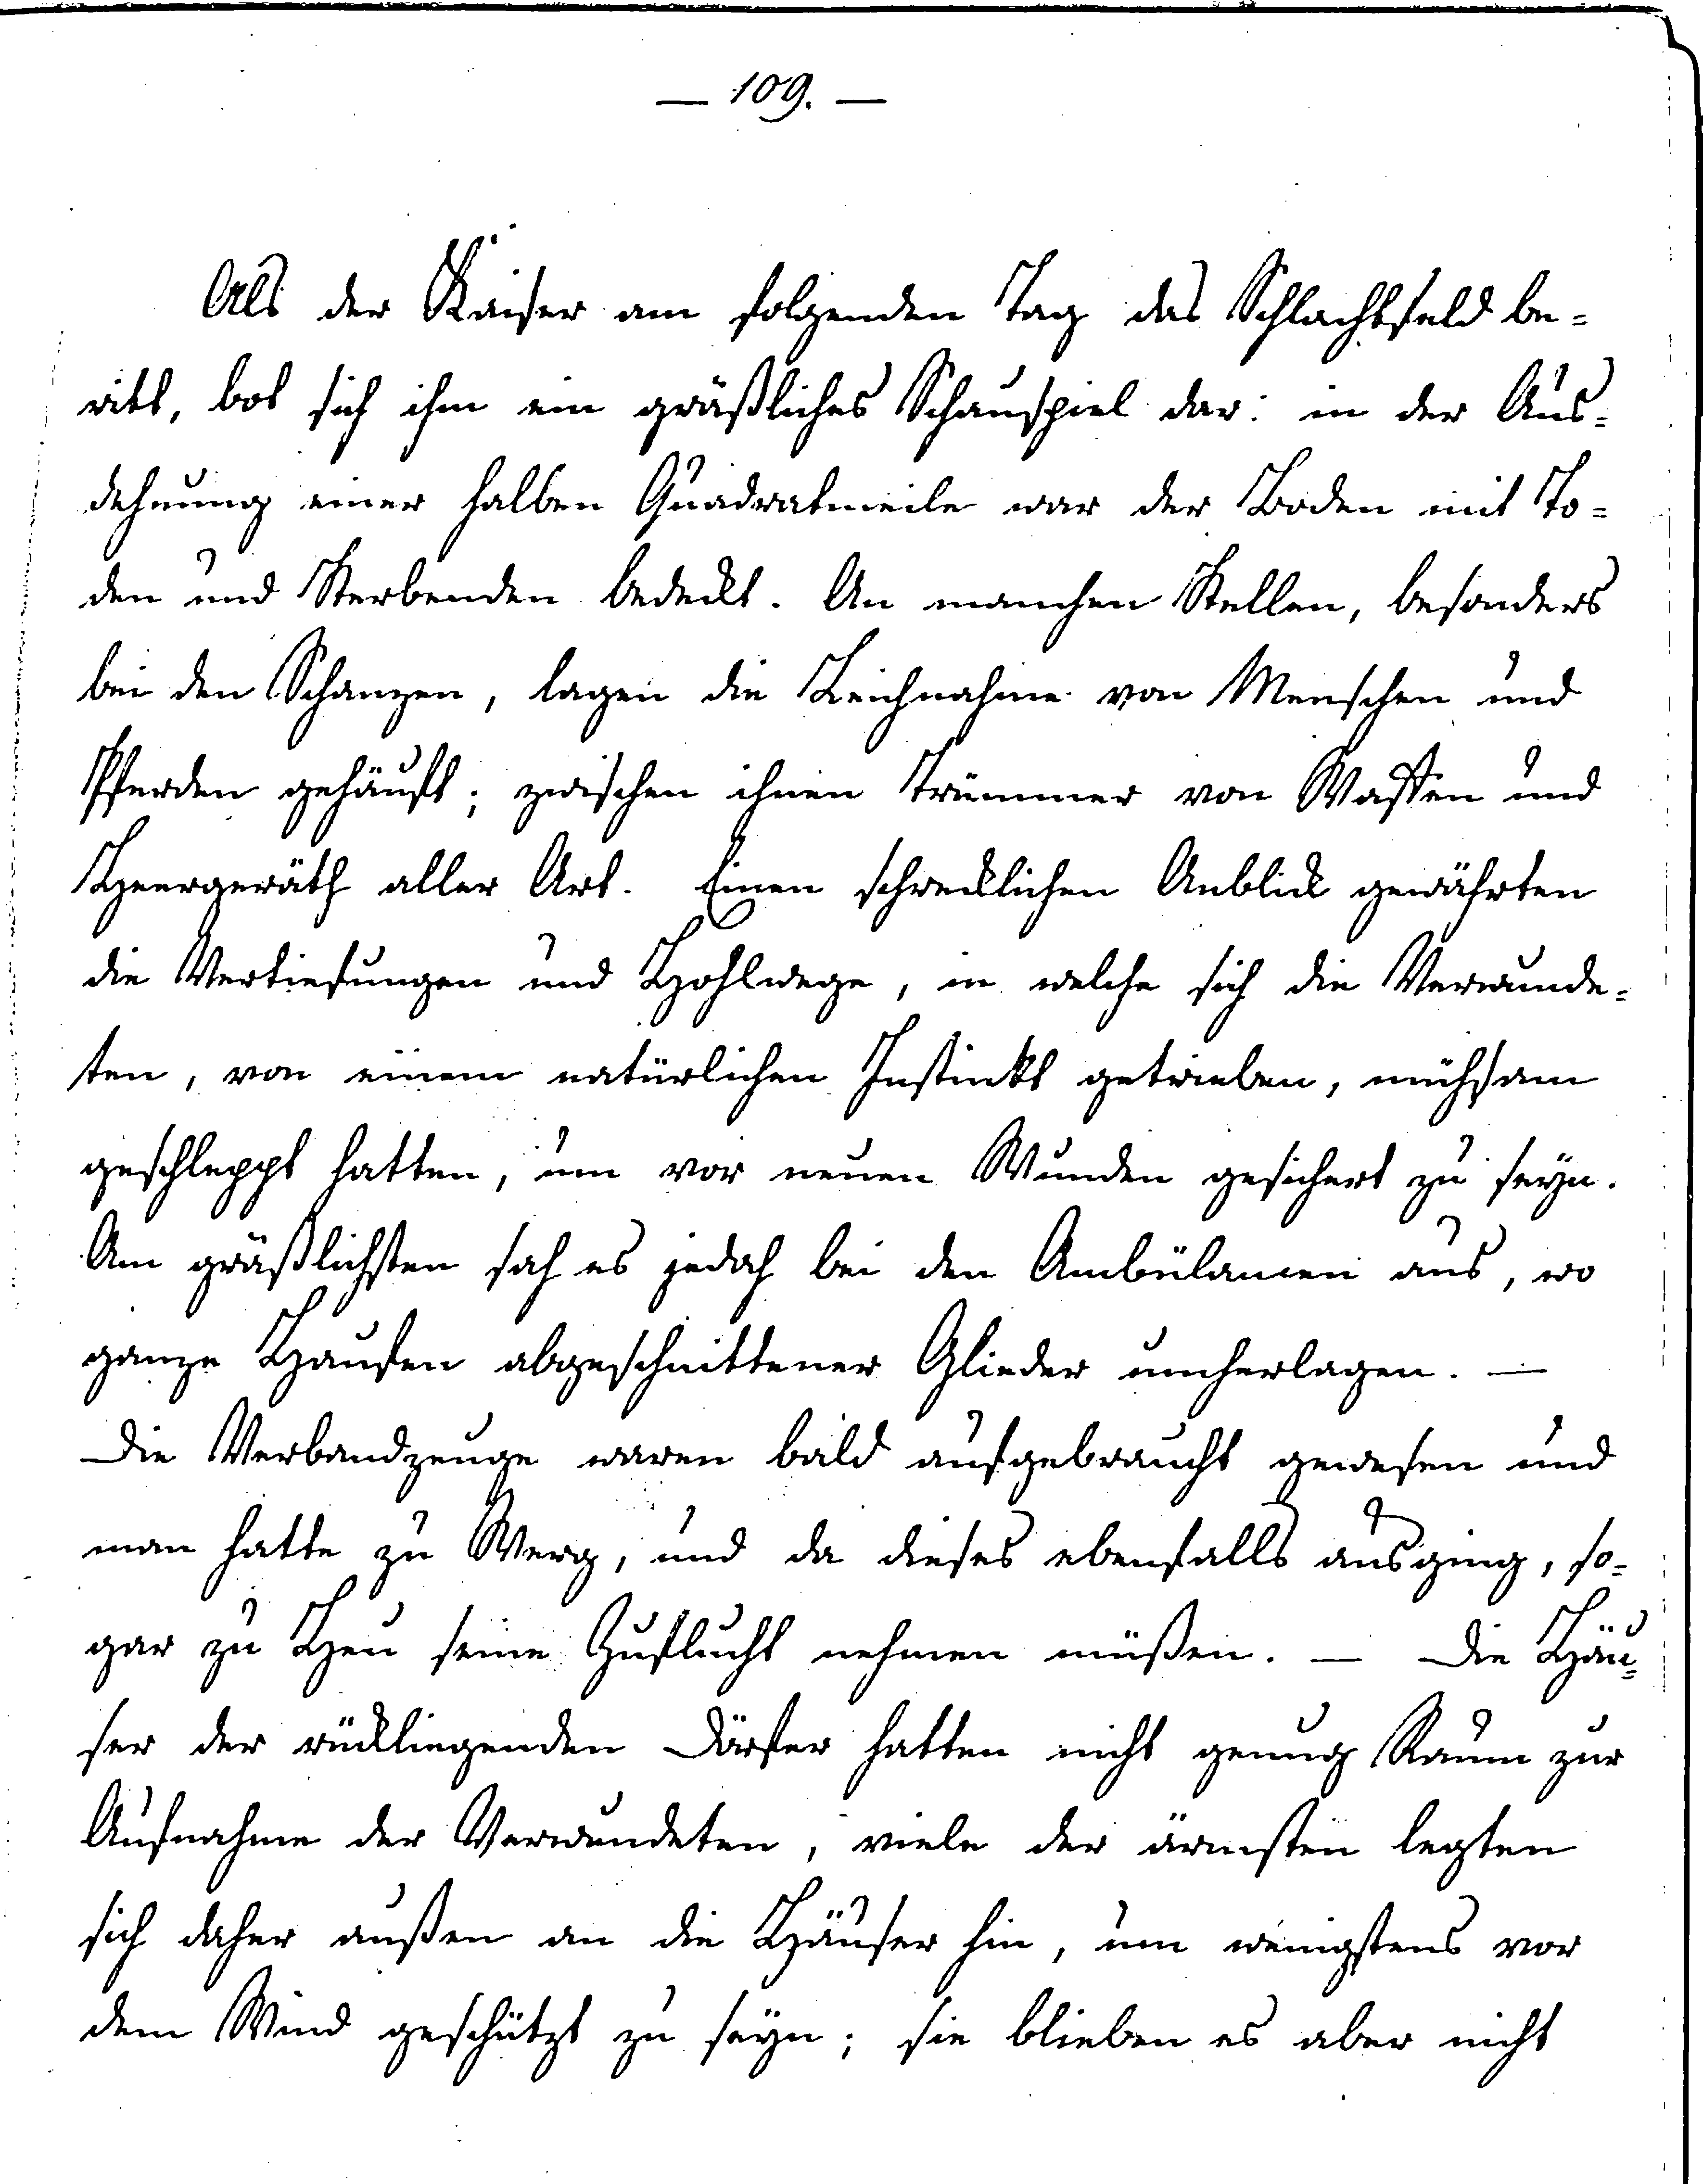 — 109. —
Als der Kaiser am folgenden Tag das Schlachtfeld be=
ritt, bot sich ihm ein gräßliches Schauspiel dar: in der Aus=
dehnung einer halben Quadratmeile war der Boden mit To=
den und Sterbenden bedeckt. An manchen Stellen, besonders
bei den Schanzen, lagen die Leichnahme von Menschen und
Pferden gehäuft; zwischen ihnen Trümmer von Waffen und
Heergeräth aller Art. Einen schrecklichen Anblick gewährten
die Vertiefungen und Hohlwege, in welche sich die Verwunde=
ten, von einem natürlichen Instinkt getrieben, mühsam
geschleppt hatten, um vor neuen Wunden gesichert zu seyn.
Am gräßlichsten sah es jedoch bei den Ambülancen aus, wo
ganze Haufen abgeschnittener Glieder umherlagen. —
Die Verbandzeuge waren bald aufgebraucht gewesen und
man hatte zu Werg, und da dieses ebenfalls ausging, so=
gar zu Heu seine Zuflucht nehmen müßen. — Die Häu=
ser der rückliegenden Dörfer hatten nicht genug Raum zur
Aufnahme der Verwundeten, viele der ärmsten legten
sich daher außen an die Häuser hin, um wenigstens vor
dem Wind geschützt zu seyn; sie blieben es aber nicht